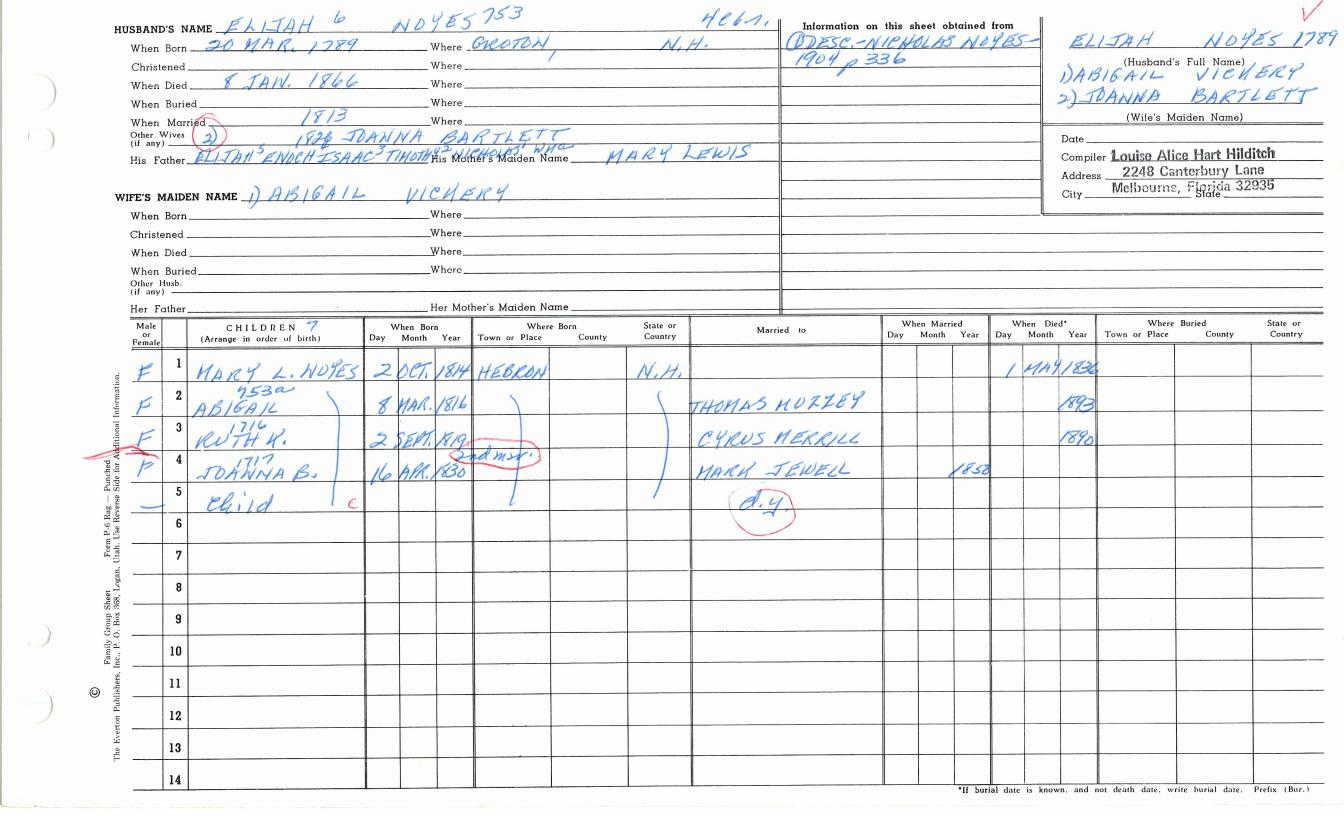 HUSBAND'S NAME ELIJAH 6 NOYES 753
When Born 20 MAR. 1789 Where GROTON, N.H.
Christened Where
When Died 8 JAN. 1866 Where
When Buried Where
When Married 1813 Where
Other Wives (if any) 2) 1826 JOANNA BARTLETT
His Father ELIJAH 5 ENOCH ISAAC 3 TIMOTHY 2 NICHOLAS 1 His Mother's Maiden Name MARY LEWIS
WIFE'S MAIDEN NAME 1) ABIGAIL VICKERY
When Born Where
Christened Where
When Died Where
When Buried Where
Other Husb. (if any)
Her Father Her Mother's Maiden Name
Information on this sheet obtained from
① DESC.-NICHOLAS NOYES-
1904 p 336
ELIJAH NOYES 1789
(Husband's Full Name)
1) ABIGAIL VICKERY
2) JOANNA BARTLETT
(Wife's Maiden Name)
Date
Compiler Louise Alice Hart Hilditch
Address 2248 Canterbury Lane
City Melbourne, Florida 32935 State
Male or Female CHILDREN 7 (Arrange in order of birth) When Born Day Month Year Where Born Town or Place County State or Country Married to When Married Day Month Year When Died* Day Month Year Where Buried Town or Place County State or Country
F 1 MARY L. NOYES 2 OCT. 1814 HEBRON N.H. 1 MAY 1836
753a
F 2 ABIGAIL 8 MAR. 1816 THOMAS MUZZEY 1893
1716
F 3 RUTH K. 2 SEPT. 1819 CYRUS MERRILL 1890
2nd mar.
1717
F 4 JOANNA B. 16 APR. 1830 MARK JEWELL 1850
— 5 Child C d.y.
6
7
8
9
10
11
12
13
14
*If burial date is known, and not death date, write burial date. Prefix (Bur.)
© Family Group Sheet Form P-6 Rag — Punched
The Everton Publishers, Inc., P. O. Box 368, Logan, Utah. Use Reverse Side for Additional Information.